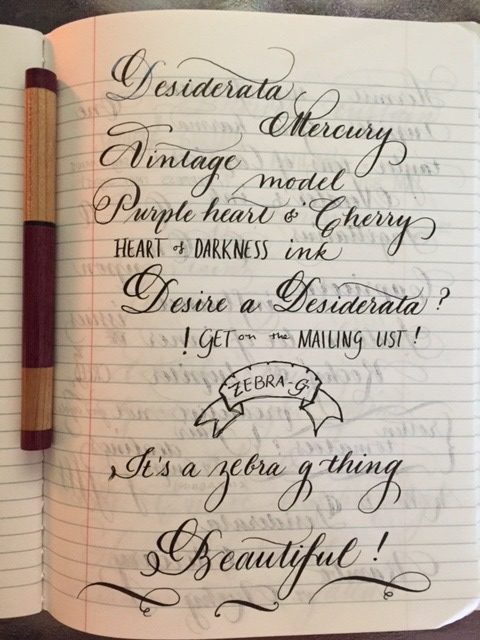 Desiderata
Mercury
Vintage
model
Purple heart & Cherry
HEART of DARKNESS ink
Desire a Desiderata?
! GET on the MAILING LIST!
ZEBRA-G
It's a zebra g thing
Beautiful!